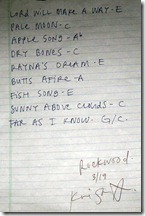 LORD WILL MAKE A WAY - E
PALE MOON - C
APPLE SONG - A
DRY BONES - C
RAYNA'S DREAM - E
BUTTS AFIRE - A
FISH SONG - E
SUNNY ABOVE CLOUDS - C
FAR AS I KNOW. G/C.
ROCKWOOD
3/19